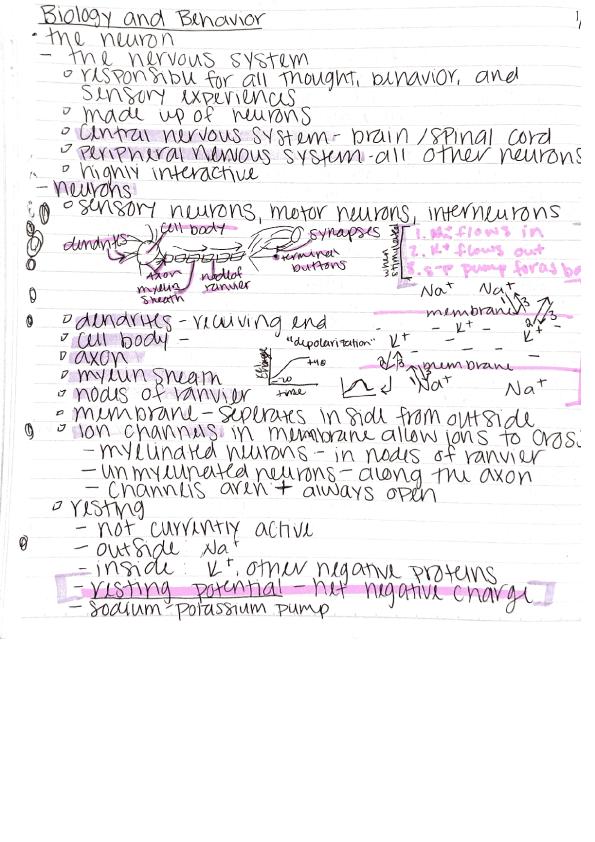 Biology and Behavior
• the neuron
- the nervous system
responsible for all thought, behavior, and
sensory experiences
made up of neurons
central nervous system - brain / spinal cord
peripheral nervous system - all other neurons
highly interactive
- neurons
sensory neurons, motor neurons, interneurons
dendrites
cell body
axon
myelin
sheath
node of
ranvier
synapses
terminal
buttons
when
stimulated
flows in
2. K+ flows out
pump
Na+ Na+
membrane
1 3
2 3
- - K+ - K+
K+ - -
2 3
membrane
1 3
Na+ Na+
dendrites - receiving end
cell body -
axon
myelin sheath
nodes of ranvier
"depolarization"
charge
+40
time
membrane - seperates inside from outside
ion channels in membrane allow ions to cross
- myelinated neurons - in nodes of ranvier
- unmyelinated neurons - along the axon
- channels aren't always open
resting
- not currently active
- outside: Na+
- inside: K+, other negative proteins
- resting potential - net negative charge
- sodium-potassium pump